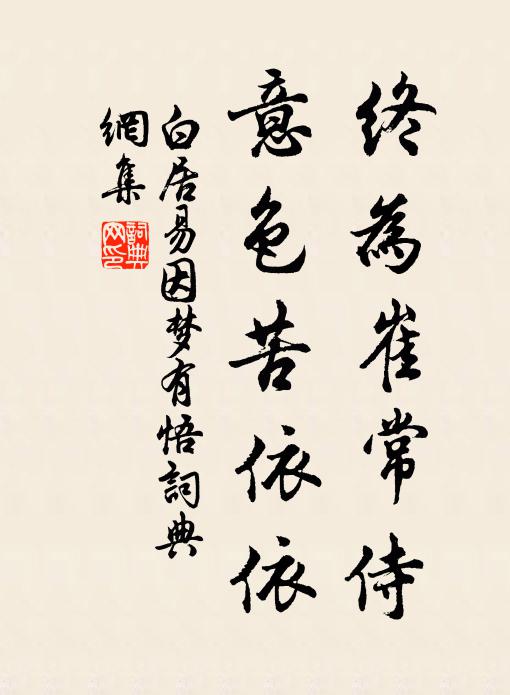 終為崔常侍
意色苦依依
白居易因梦有悟詞典
網集
詞典
网印